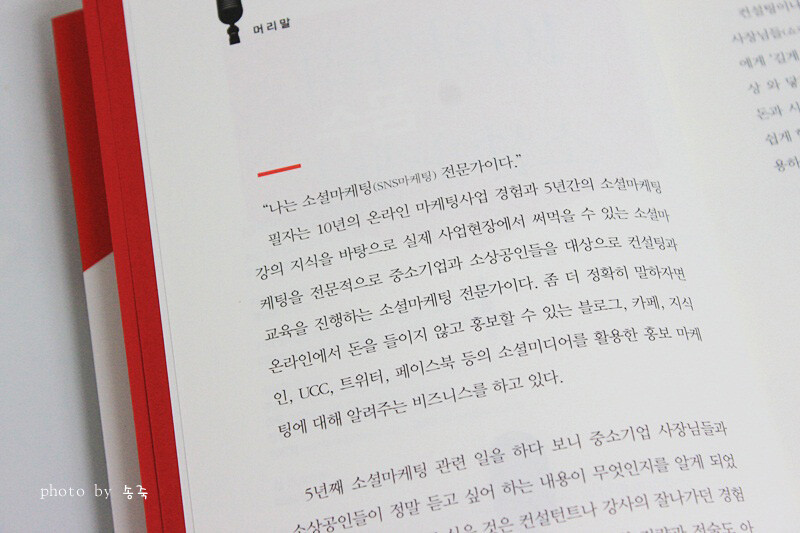 머리말
"나는 소셜마케팅(SNS마케팅) 전문가이다."
필자는 10년의 온라인 마케팅사업 경험과 5년간의 소셜마케팅
강의 지식을 바탕으로 실제 사업현장에서 써먹을 수 있는 소셜마
케팅을 전문적으로 중소기업과 소상공인들을 대상으로 컨설팅과
교육을 진행하는 소셜마케팅 전문가이다. 좀 더 정확히 말하자면
온라인에서 돈을 들이지 않고 홍보할 수 있는 블로그, 카페, 지식
인, UCC, 트위터, 페이스북 등의 소셜미디어를 활용한 홍보 마케
팅에 대해 알려주는 비즈니스를 하고 있다.
5년째 소셜마케팅 관련 일을 하다 보니 중소기업 사장님들과
소상공인들이 정말 듣고 싶어 하는 내용이 무엇인지를 알게 되었
것은 컨설턴트나 강사의 잘나가던 경험
컨설팅이나
사장님들
에게 '길게
상 와 닿
돈과 시
쉽게
용하
photo by 송죽